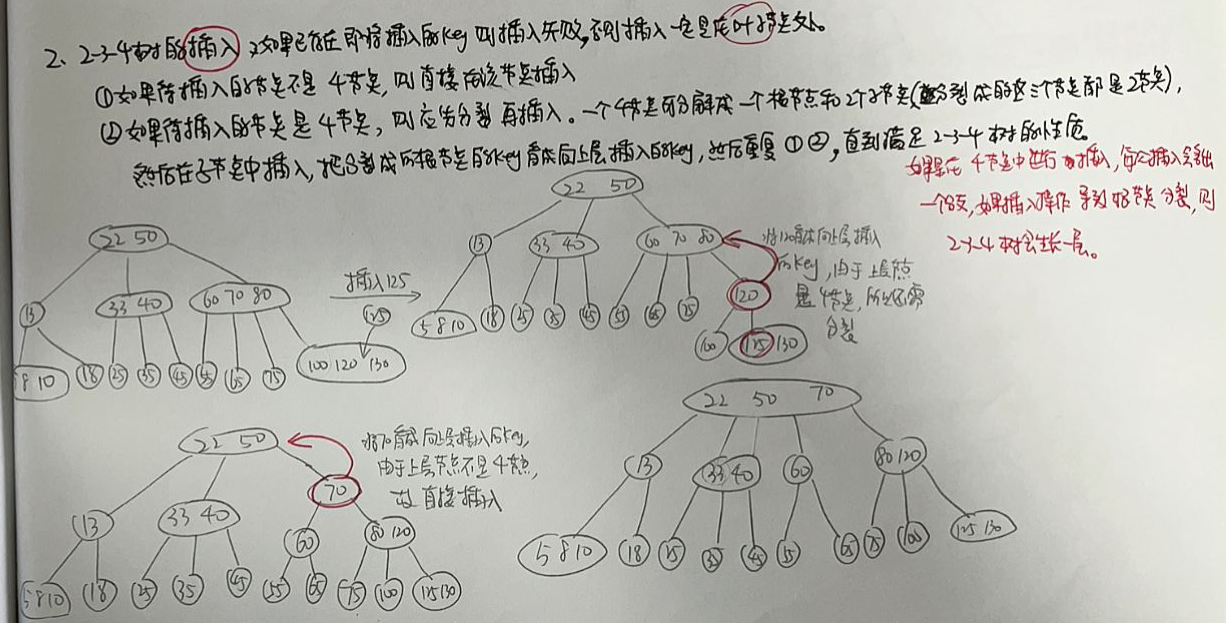 2、2-3-4树的插入,如果已存在即将插入的key则插入失败,否则插入一定是在叶子节点处。
①如果待插入的节点不是4节点,则直接在该节点插入
②如果待插入的节点是4节点,则应先分裂再插入。一个4节点可分解成一个根节点和2个子节点(分裂成的这三个节点都是2节点),
然后在子节点中插入,把分裂成的根节点的key看成向上层插入的key,然后重复①②,直到满足2-3-4树的性质。
如果在4节点中进行插入,每次插入会多出
一个分支,如果插入操作导致根节点分裂,则
2-3-4树会生长一层。
22 50
13 33 40 60 70 80
8 10 18 25 35 45 55 65 75 100 120 130
插入125
125
22 50
13 33 40 60 70 80
将120看成向上层插入
的key,由于上层节点
是4节点,所以还需
分裂
120
5 8 10 18 25 35 45 55 65 75
100 125 130
22 50
将70看成向上层插入的key,
由于上层节点不是4节点,
故直接插入
70
13 33 40 60 80 120
5 8 10 18 25 35 45 55 65 75 100 125 130
22 50 70
13 33 40 60 80 120
5 8 10 18 25 35 45 55 65 75 100 125 130